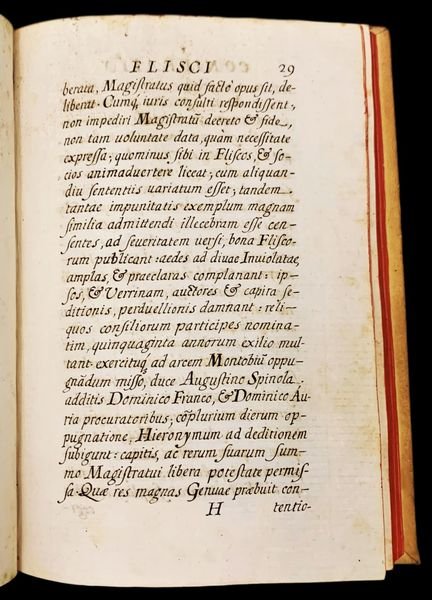 FLISCI 29
berata, Magistratus quid facto opus sit, de-
liberat. Cumq; iuris consulti respondissent,
non impediri Magistratū decreto & fide,
non tam voluntate data, quàm necessitate
expressa, quominus sibi in Fliscos, & so-
cios animaduertere liceat; cum aliquan-
diu sententiis variatum esset; tandem
tantae impunitatis exemplum magnam
similia admittendi illecebram esse cen-
sentes, ad seueritatem uersi, bona Flisco-
rum publicant: aedes ad diuae Inuiolatae,
amplas, & praeclaras complanant: ip-
sos, & Verrinam, auctores & capita se-
ditionis, perduellionis damnant: reli-
quos consiliorum participes nomina-
tim, quinquaginta annorum exilio mul-
tant. exercituq; ad arcem Montobiū oppu-
gnādum misso, duce Augustino Spinola.
additis Dominico Franco, & Dominico Au-
ria procuratoribus; cōplurium dierum op-
pugnatione, Hieronymum ad deditionem
subigunt: capitis, ac rerum suarum sum-
mo Magistratui libera potestate permis-
sa. Quæ res magnas Genuae præbuit con-
H tentio-